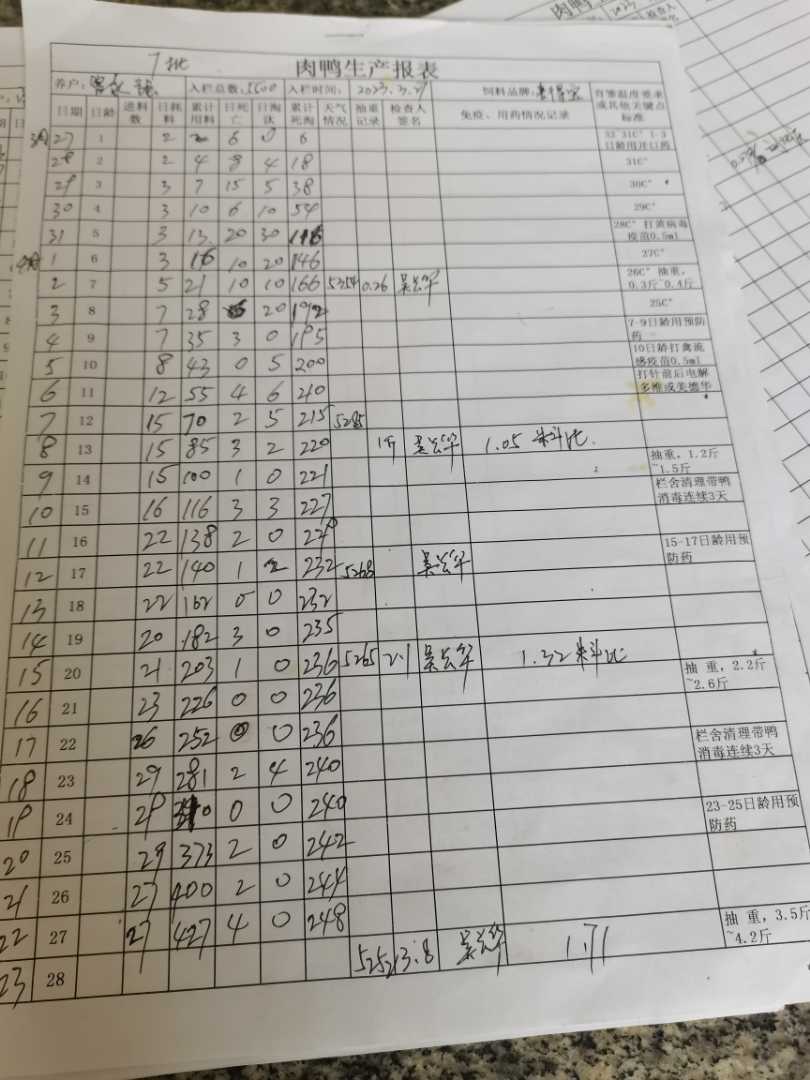 7批
肉鸭生产报表
养户: 入栏总数: 5500 入栏时间: 2023.3.27 饲料品牌: 育雏温度要求或其他关键点标准
日期 日龄 进料数 日耗料 累计用料 日死亡 日淘汰 累计死淘 天气情况 抽重记录 检查人签名 免疫、用药情况记录
3月 27 1 2 2 6 0 6 33°31C° 1-3日龄用开口药
28 2 2 4 8 4 18 31C°
29 3 3 7 15 5 38 30C°
30 4 3 10 6 10 54 29C°
31 5 3 13 20 30 116 28C° 打黄病毒疫苗0.5ml
4月 1 6 3 16 10 20 146 27C°
2 7 5 21 10 10 166 5354 0.26 26C° 抽重,0.3斤~0.4斤
3 8 7 28 20 192 25C°
4 9 7 35 3 0 195 7-9日龄用预防药
5 10 8 43 0 5 200 10日龄打禽流感疫苗0.5ml
6 11 12 55 4 6 210 打针前后电解多维或美德华
7 12 15 70 2 5 215 5285
8 13 15 85 3 2 220 1斤 1.05 料比. 抽重,1.2斤~1.5斤
9 14 15 100 1 0 221 栏舍清理带鸭消毒连续3天
10 15 16 116 3 3 227
11 16 22 138 2 0 229 15-17日龄用预防药
12 17 22 140 1 2 232 5268
13 18 22 162 0 0 232
14 19 20 182 3 0 235
15 20 21 203 1 0 236 5265 2.1 1.32 料比 抽 重,2.2斤~2.6斤
16 21 23 226 0 0 236
17 22 26 252 0 0 236 栏舍清理带鸭消毒连续3天
18 23 29 281 2 4 240
19 24 29 310 0 0 240 23-25日龄用预防药
20 25 29 373 2 0 242
21 26 27 400 2 0 244
22 27 27 427 4 0 248 抽 重,3.5斤~4.2斤
23 28 5252 3.8 1.71